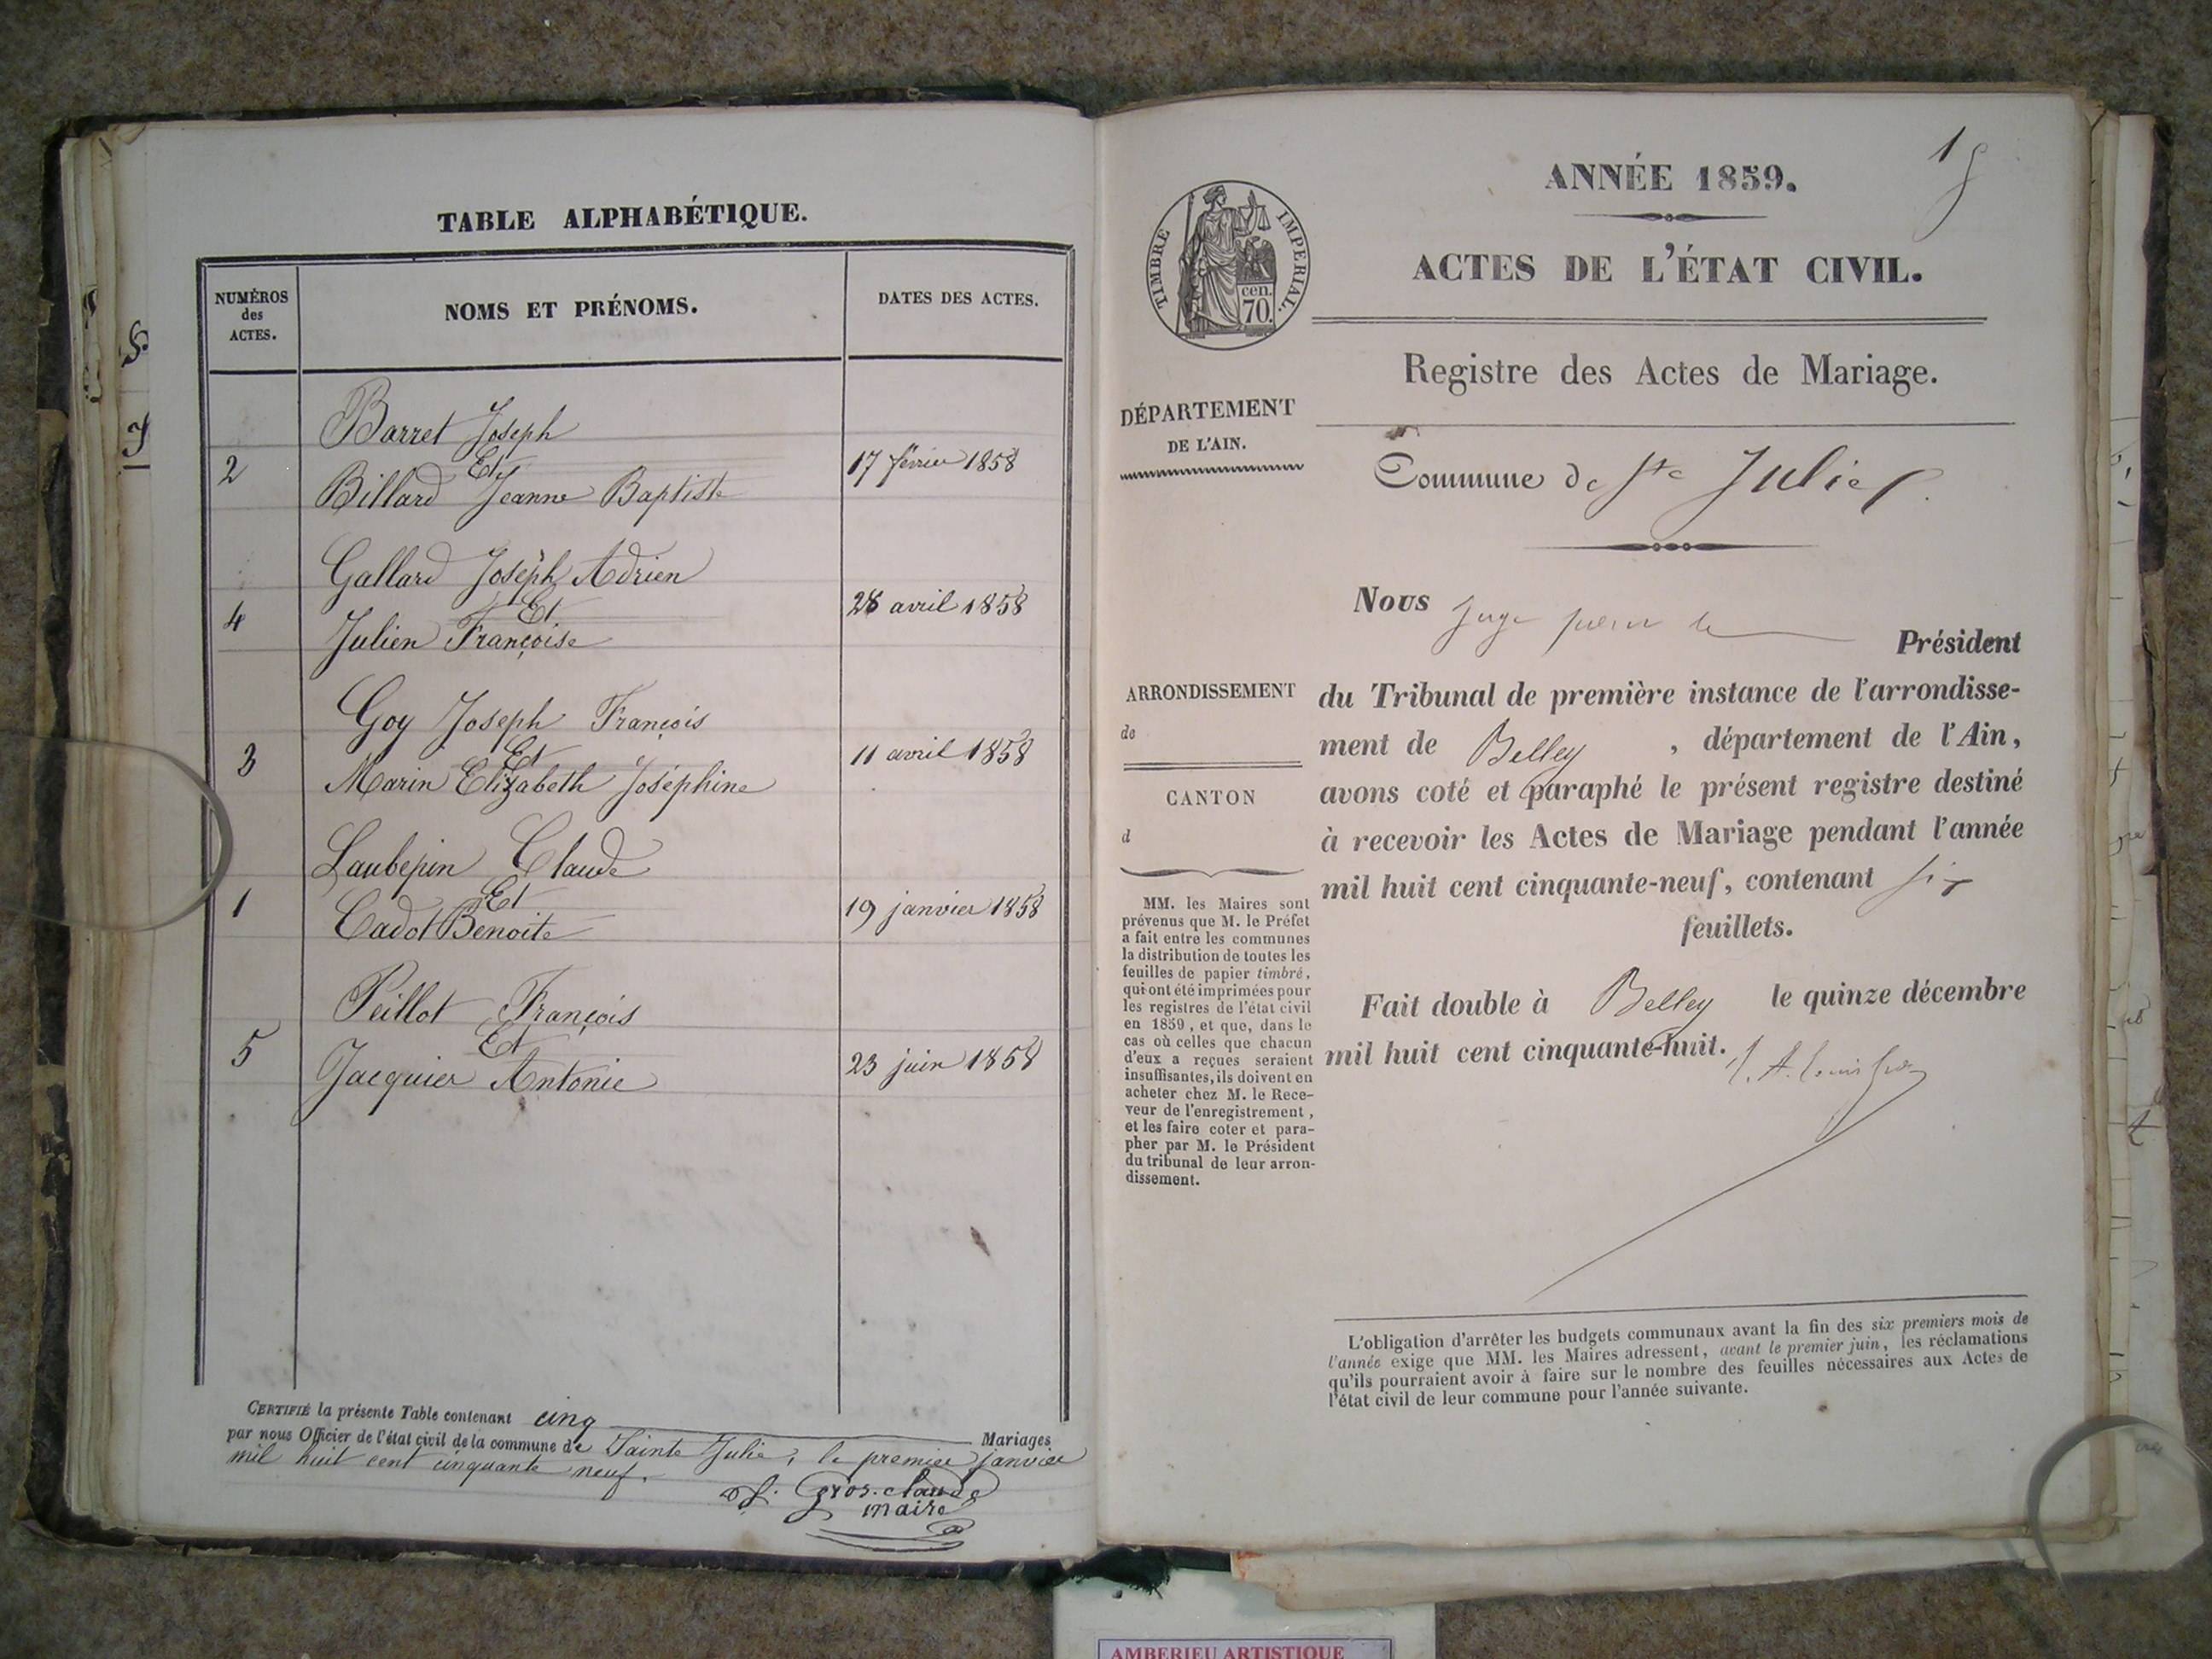 TABLE ALPHABÉTIQUE.
NUMÉROS
des
ACTES.
NOMS ET PRÉNOMS.
DATES DES ACTES.
Barret Joseph
Et
2
17 février 1858
Billard Jeanne Baptiste
Gallard Joseph Adrien
Et
28 avril 1858
4
Julien Françoise
Goy Joseph François
Et
3
11 avril 1858
Marin Elizabeth Joséphine
Laubepin Claude
Et
1
19 janvier 1858
Cadot Benoite
Peillot François
Et
5
23 juin 1858
Jacquier Antonie
CERTIFIÉ la présente Table contenant cinq
Mariages
par nous Officier de l'état civil de la commune de Sainte Julie, le premier janvier
mil huit cent cinquante neuf.
Gros. claude
maire
1
ANNÉE 1859.
ACTES DE L'ÉTAT CIVIL.
TIMBRE IMPERIAL.
cen.
70.
Registre des Actes de Mariage.
DÉPARTEMENT
DE L'AIN.
Commune de Ste Julie
Nous Juge pour le
Président
ARRONDISSEMENT
de
CANTON
d
du Tribunal de première instance de l'arrondisse-
ment de Belley, département de l'Ain,
avons coté et paraphé le présent registre destiné
à recevoir les Actes de Mariage pendant l'année
mil huit cent cinquante-neuf, contenant six
feuillets.
Fait double à Belley le quinze décembre
mil huit cent cinquante-huit.
MM. les Maires sont
prévenus que M. le Préfet
a fait entre les communes
la distribution de toutes les
feuilles de papier timbré,
qui ont été imprimées pour
les registres de l'état civil
en 1859, et que, dans le
cas où celles que chacun
d'eux a reçues seraient
insuffisantes, ils doivent en
acheter chez M. le Rece-
veur de l'enregistrement,
et les faire coter et para-
pher par M. le Président
du tribunal de leur arron-
dissement.
L'obligation d'arrêter les budgets communaux avant la fin des six premiers mois de
l'année exige que MM. les Maires adressent, avant le premier juin, les réclamations
qu'ils pourraient avoir à faire sur le nombre des feuilles nécessaires aux Actes de
l'état civil de leur commune pour l'année suivante.
AMBERIEU ARTISTIQUE